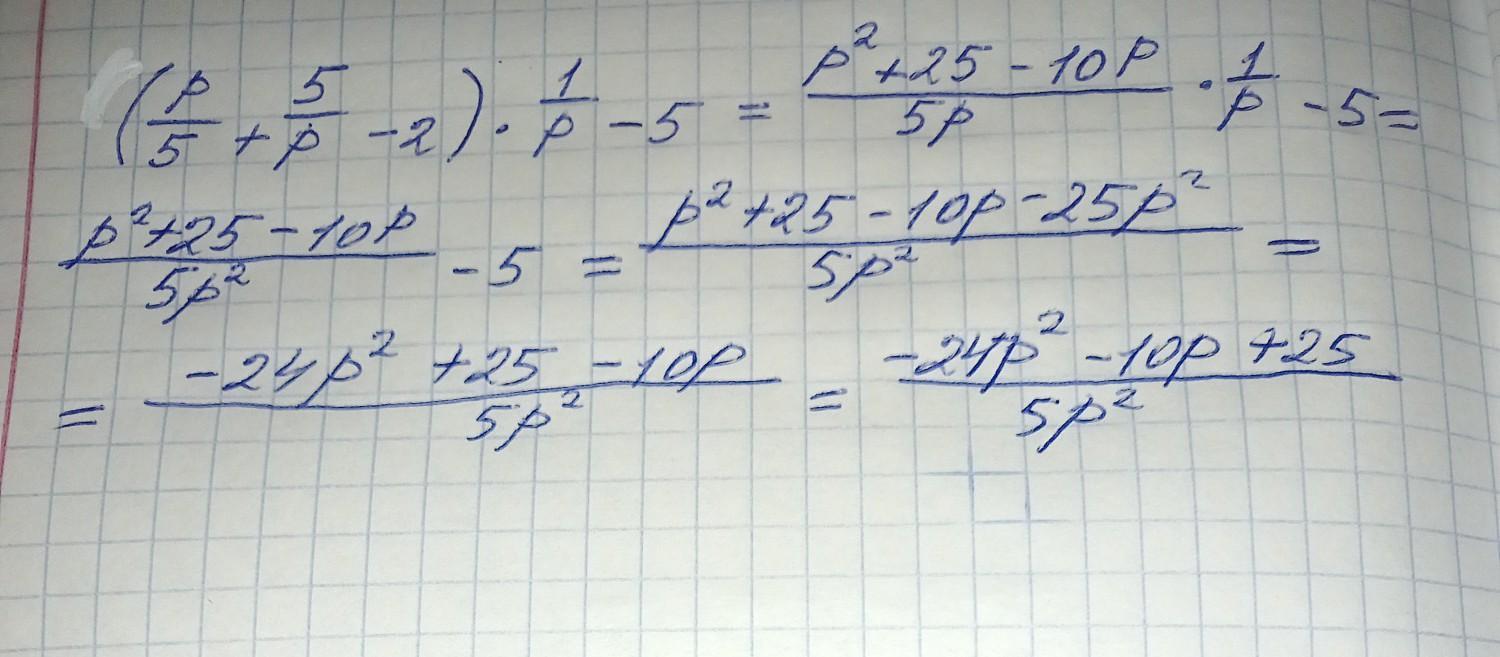 (p/5 + 5/p - 2) · 1/p - 5 = (p² + 25 - 10p)/(5p) · 1/p - 5 =
(p² + 25 - 10p)/(5p²) - 5 = (p² + 25 - 10p - 25p²)/(5p²) =
= (-24p² + 25 - 10p)/(5p²) = (-24p² - 10p + 25)/(5p²)